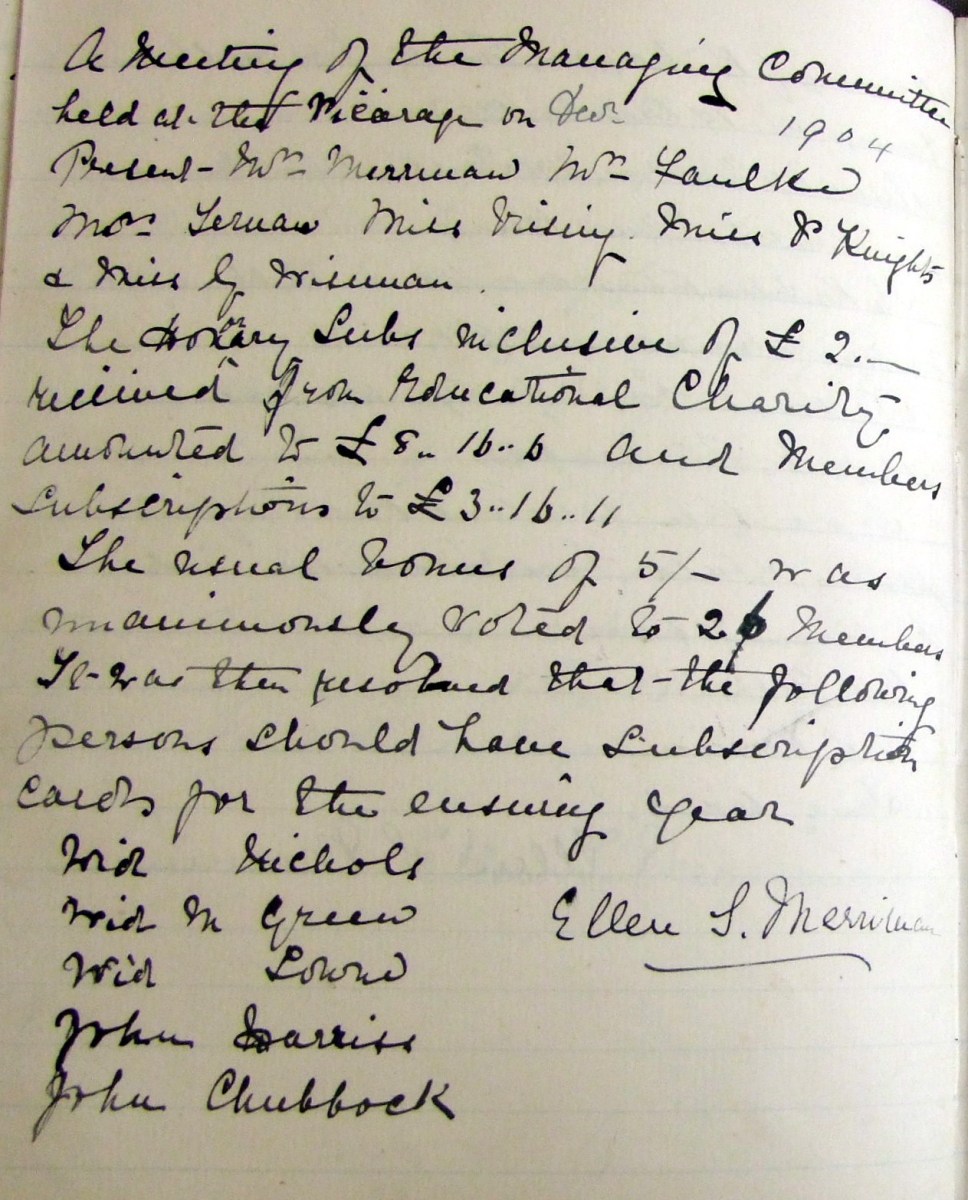 A Meeting of the Managing Committee
held at the Vicarage on Decr 1904
Present - Mrs Merriman Mrs Faulke
Mrs Ternan Miss Rising. Miss P Knights
& Miss G Wiseman.
The Honrary Subs inclusive of £ 2..-
received from Educational Charity
amounted to £ 8.. 16..6 and Members
Subscriptions to £ 3..16..11
The usual bonus of 5/- was
unanimously voted to 26 Members
It was then resolved that the following
persons should have Subscription
cards for the ensuing year
Wid Nichols
Wid M Green
Ellen S. Merriman
Wid Lowne
John Harriss
John Chubbock